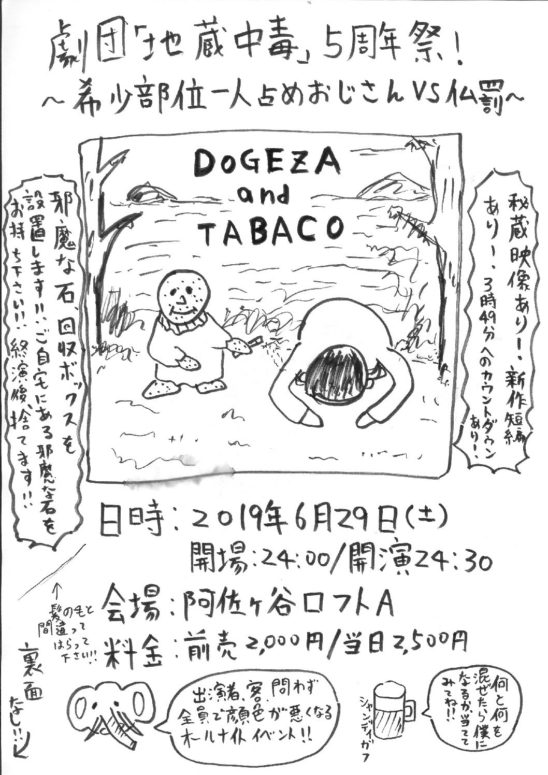 劇団「地蔵中毒」5周年祭!
~希少部位一人占めおじさんVS仏罰~
DOGEZA
and
TABACO
秘蔵映像ありー、新作短編
ありー、3時49分へのカウントダウン
ありー、
邪魔な石回収ボックスを
設置します!!ご自宅にある邪魔な石を
お持ち下さい!!終演後捨てます!!
日時:2019年6月29日(土)
開場:24:00/開演24:30
会場:阿佐ヶ谷ロフトA
料金:前売2,000円/当日2,500円
↑
髪の毛と
間違って
はらって
下さい!!
裏面
なし!!
出演者、客、問わず
全員で顔色が悪くなる
オールナイトイベント!!
シャンディガフ
何と何を
混ぜたら僕に
なるか、当てて
みてね!!